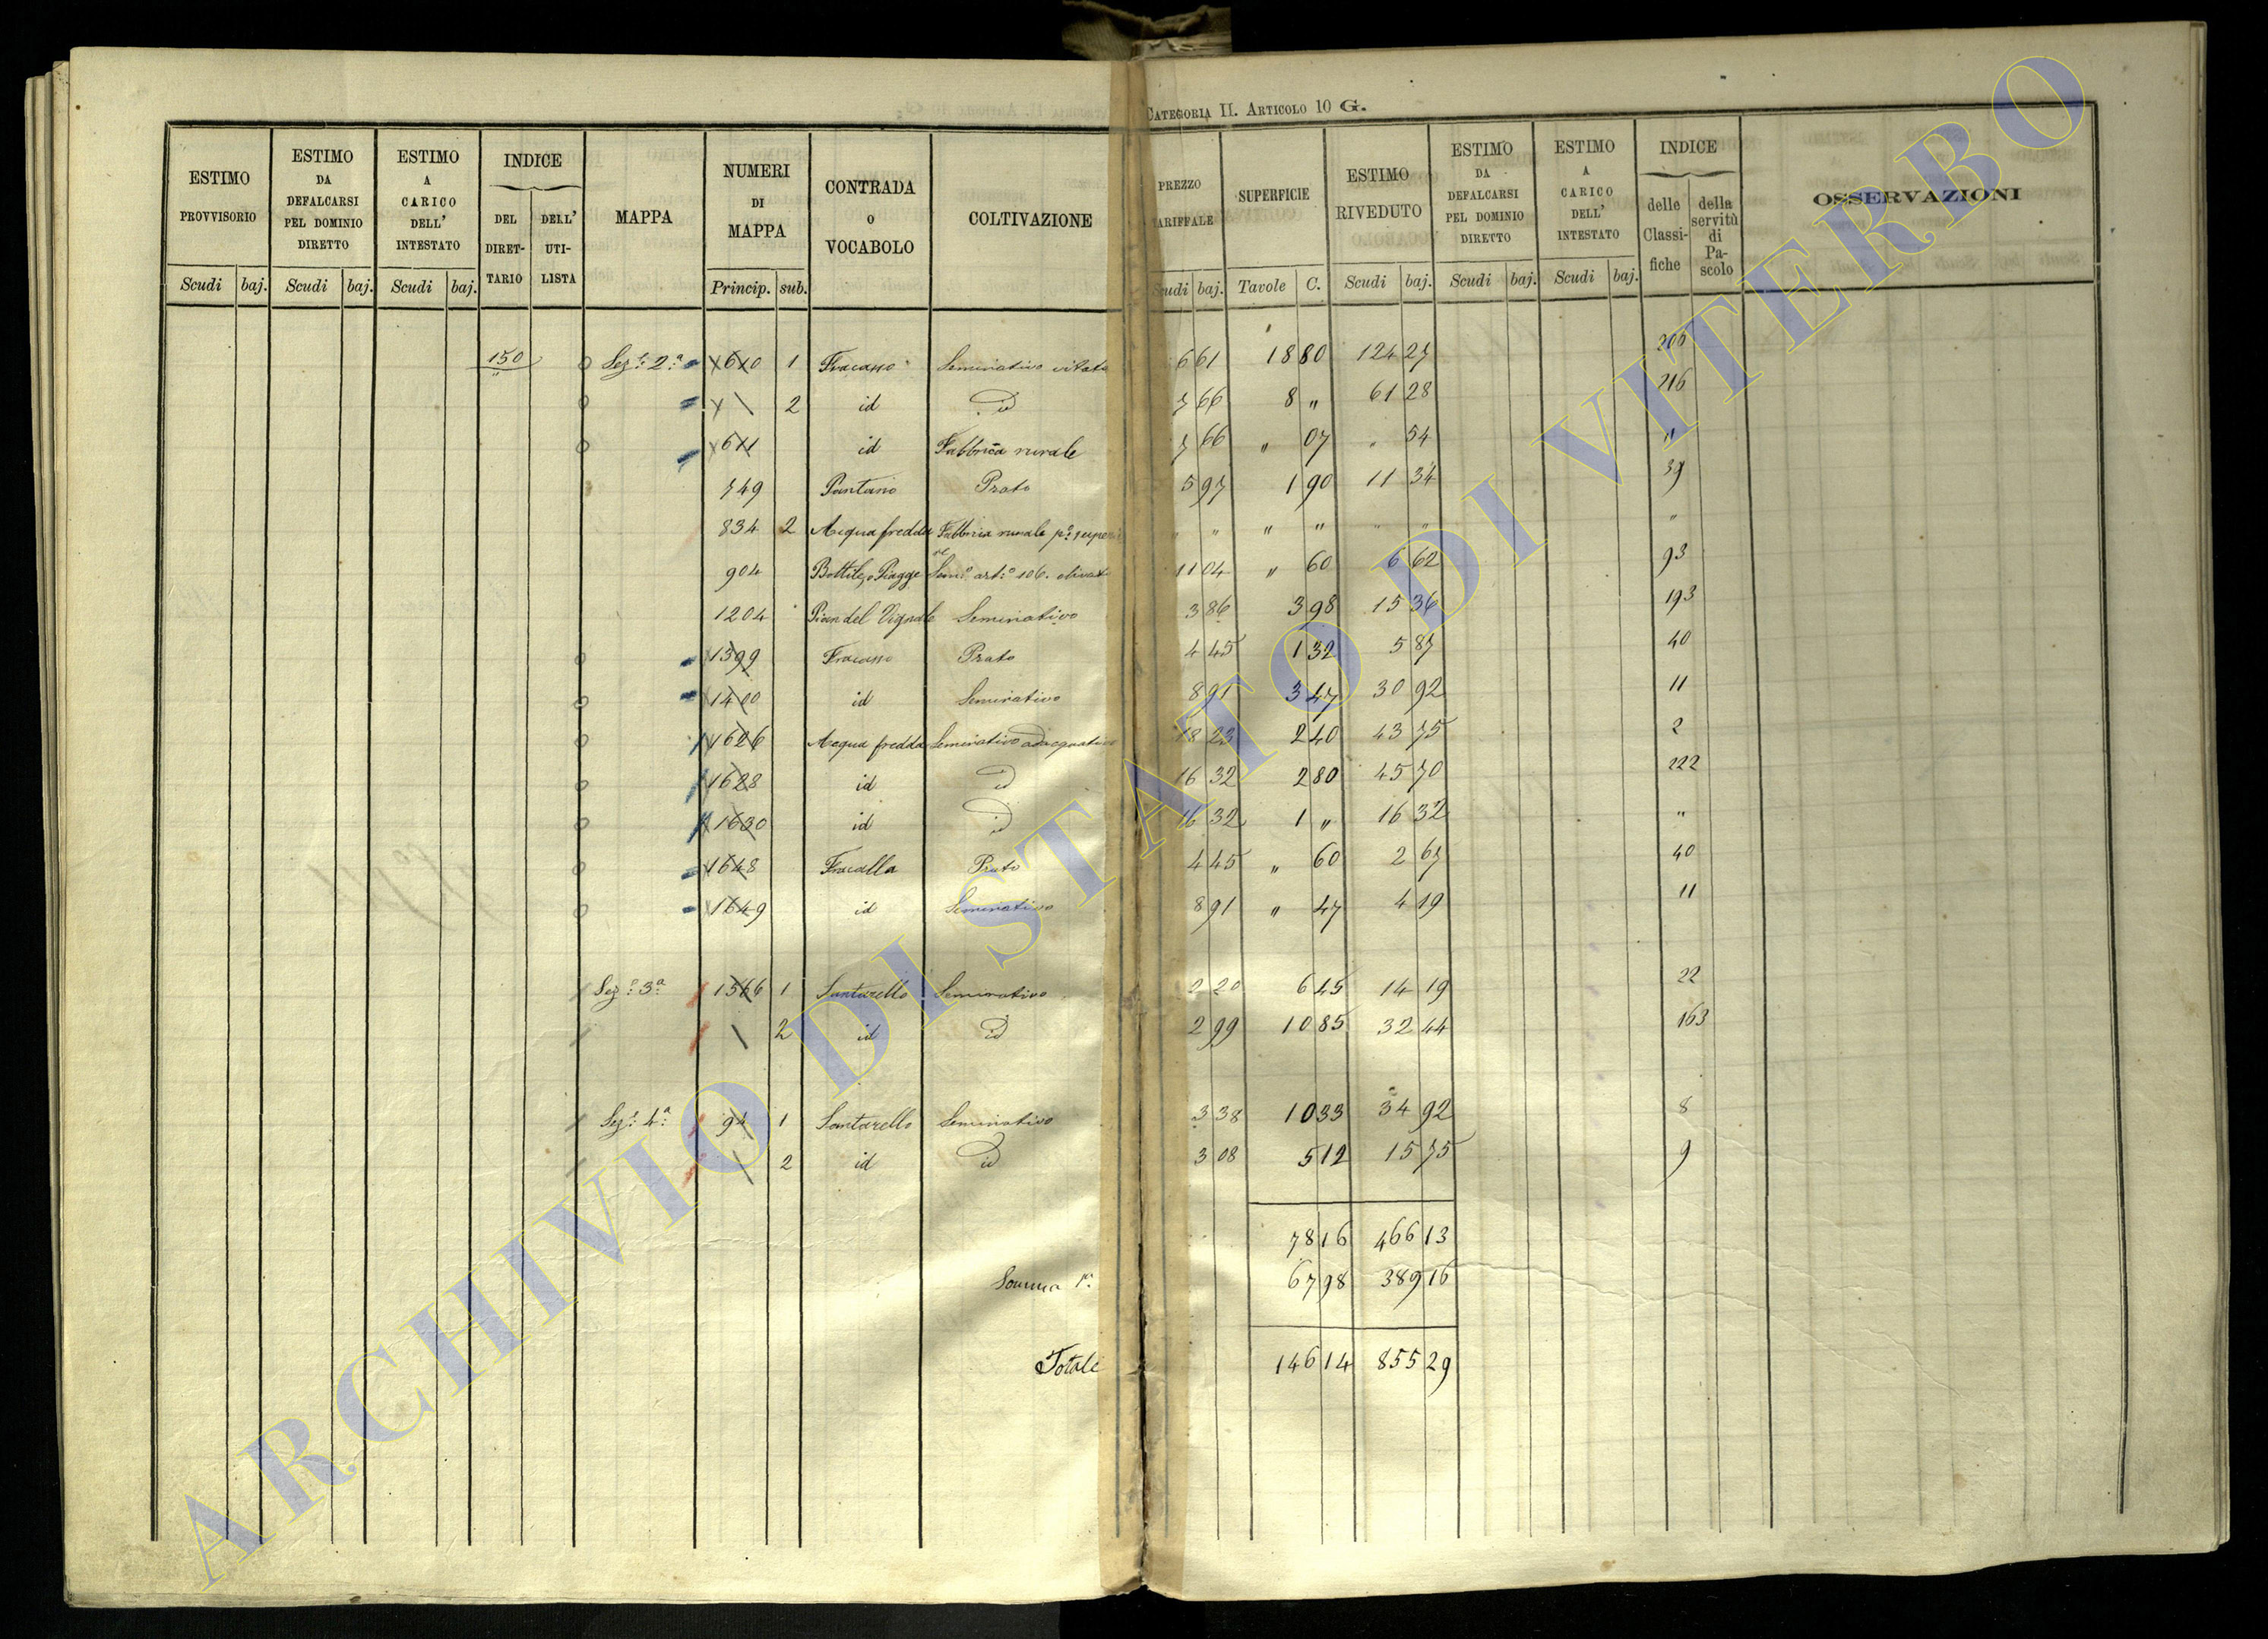 CATEGORIA II. ARTICOLO 10 G.
ESTIMO PROVVISORIO Scudi baj.
ESTIMO DA DEFALCARSI PEL DOMINIO DIRETTO Scudi baj.
ESTIMO A CARICO DELL' INTESTATO Scudi baj.
INDICE DEL DIRETTARIO DELL' UTILISTA
MAPPA
NUMERI DI MAPPA Princip. sub.
CONTRADA o VOCABOLO
COLTIVAZIONE
PREZZO TARIFFALE Scudi baj.
SUPERFICIE Tavole C.
ESTIMO RIVEDUTO Scudi baj.
ESTIMO DA DEFALCARSI PEL DOMINIO DIRETTO Scudi baj.
ESTIMO A CARICO DELL' INTESTATO Scudi baj.
INDICE delle Classifiche della servitù di Pascolo
OSSERVAZIONI
150 Sez.e 2.a 610 1 Fracasso Seminativo vitato 6 61 18 80 124 27
2 id id 7 66 8 " 61 28 216
611 id Fabbrica rurale 7 66 " 07 " 54 "
749 Pantano Prato 5 97 1 90 11 34 39
834 2 Acqua fredda Fabbrica rurale p.o superi " " " " " " "
904 Bottile, o Piagge Sem.o art.o 106. olivato 11 04 " 60 6 62 93
1204 Pian del Vignale Seminativo 3 86 3 98 15 36 193
1399 Fracasso Prato 4 45 1 32 5 87 40
1400 id Seminativo 8 91 3 47 30 92 11
1626 Acqua fredda Seminativo adacquativo 18 23 2 40 43 75 2
1628 id id 16 32 2 80 45 70 222
1630 id id 16 32 1 " 16 32 "
1648 Fracalla Prato 4 45 " 60 2 67 40
1649 id Seminativo 8 91 " 47 4 19 11
Sez.e 3.a 1566 1 Santarello Seminativo 2 20 6 45 14 19 22
2 id id 2 99 10 85 32 44 163
Sez.e 4.a 94 1 Santarello Seminativo 3 38 10 33 34 92 8
2 id id 3 08 5 12 15 75 9
78 16 466 13
Somma 1.a 67 98 389 16
Totale 146 14 855 29
ARCHIVIO DI STATO DI VITERBO